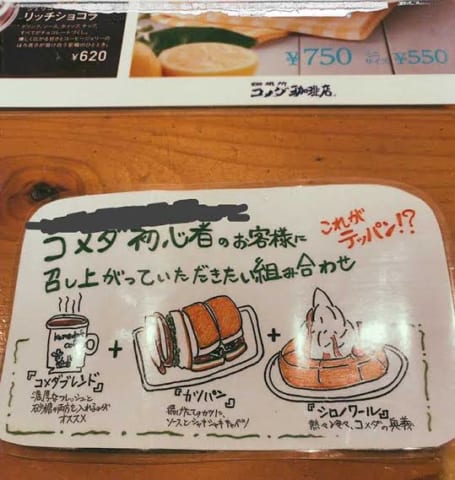 リッチショコラ
すべてがチョコレートづくし。
¥620
¥750
ミニサイズ ¥550
珈琲所
コメダ珈琲店
コメダ初心者のお客様に
召し上がっていただきたい組み合わせ
これが
テッパン!?
+
+
『コメダブレンド』
濃厚なフレッシュと
砂糖の両方を入れるのが
オススメ
『カツパン』
揚げたてのカツに、
ソースとシャキシャキキャベツ
『シロノワール』
熱々×冷々、コメダの奥義